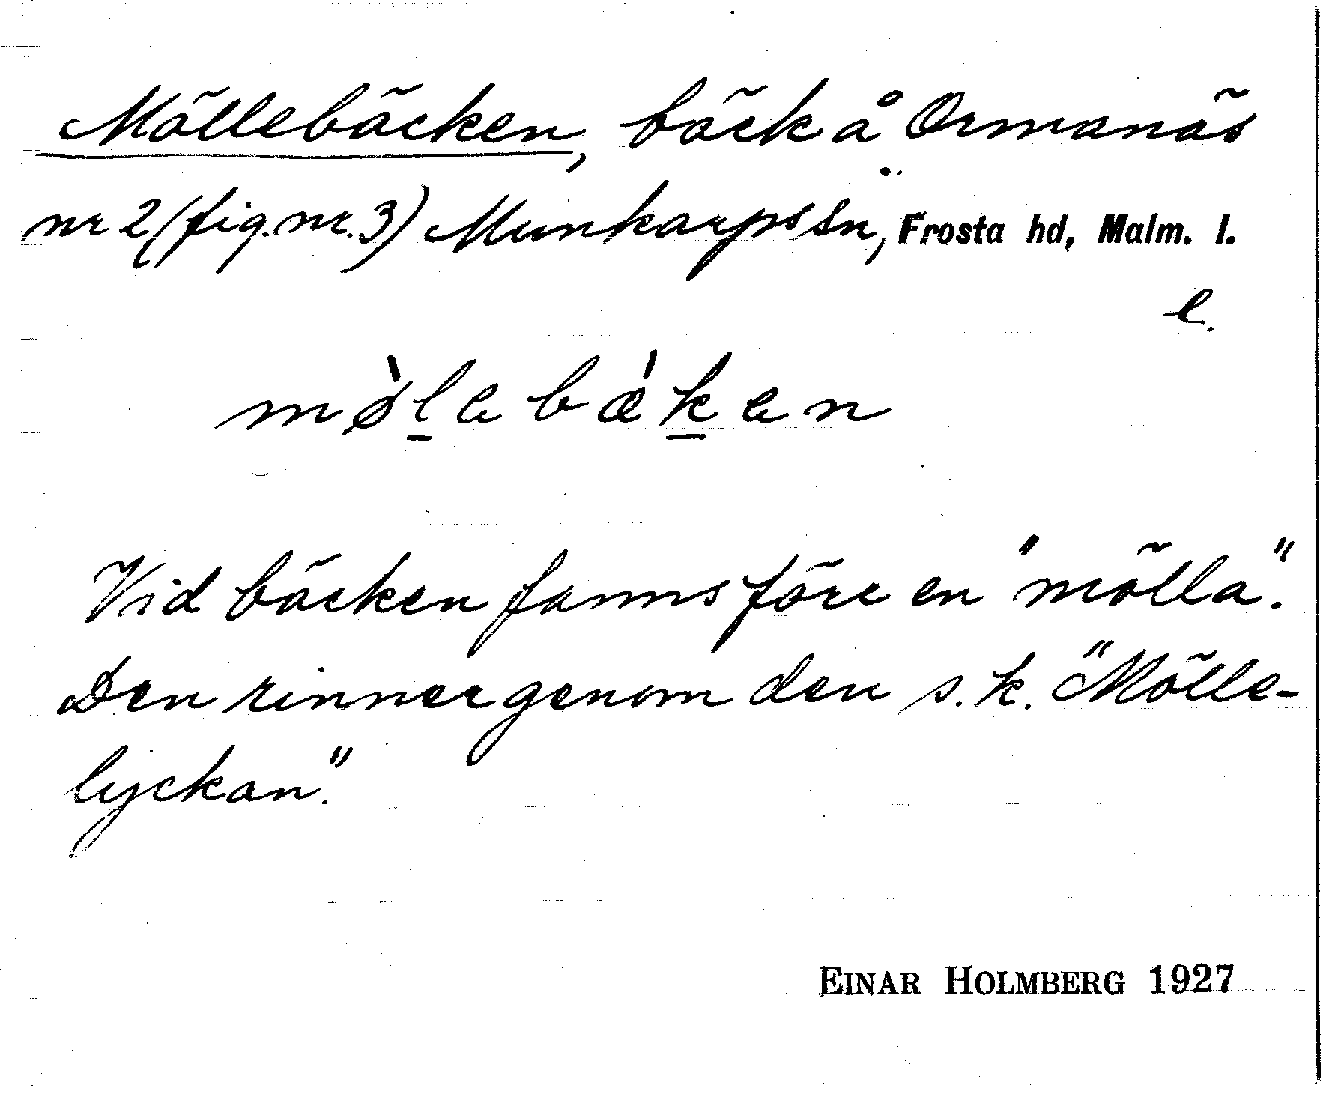 Möllebäcken, bäck å Ormanäs
nr 2 (fig. nr. 3) Munkarps sn, Frosta hd, Malm. l.
e.
mø̀l̠ebǽk̠en
Vid bäcken fanns förr en "mölla".
Den rinner genom den s.k. "Mölle-
lyckan".
EINAR HOLMBERG 1927